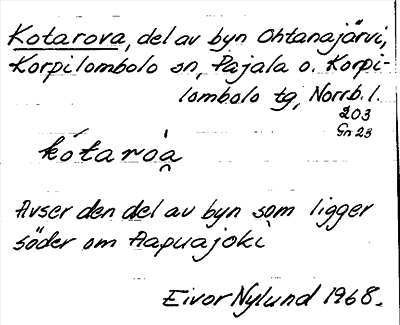 Kotarova, del av byn Ohtanajärvi,
Korpilombolo sn, Pajala o. Korpi-
lombolo tg, Norrb. l.
203
Gn 23
kότaròa̯
Avser den del av byn som ligger
söder om Aapuajoki
Eivor Nylund 1968.